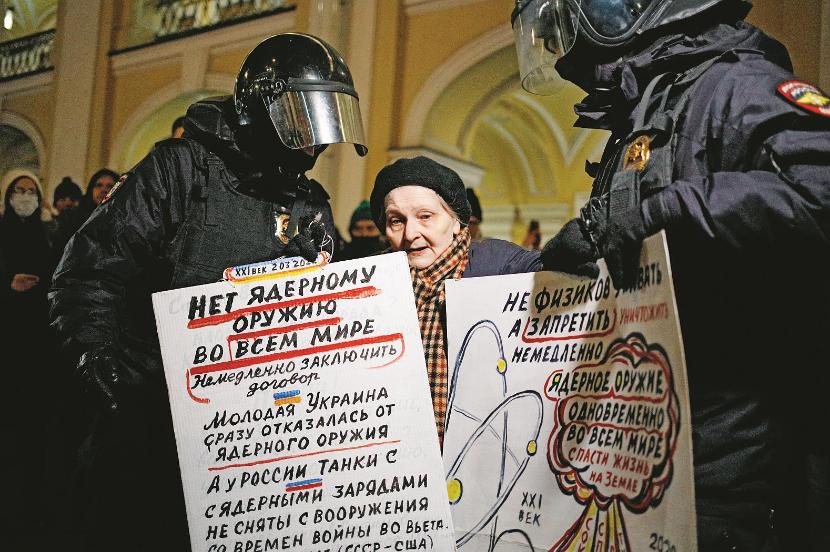 XXI ВЕК 20.3.20
НЕТ ЯДЕРНОМУ
ОРУЖИЮ
ВО ВСЕМ МИРЕ
НЕМЕДЛЕННО ЗАКЛЮЧИТЬ
ДОГОВОР
МОЛОДАЯ УКРАИНА
СРАЗУ ОТКАЗАЛАСЬ ОТ
ЯДЕРНОГО ОРУЖИЯ
А У РОССИИ ТАНКИ С
ЯДЕРНЫМИ ЗАРЯДАМИ
НЕ СНЯТЫ С ВООРУЖЕНИЯ
СО ВРЕМЕН ВОЙНЫ ВО ВЬЕТ.
(СССР-США)
НЕ ФИЗИКОВ
А ЗАПРЕТИТЬ УНИЧТОЖИТЬ
НЕМЕДЛЕННО
ЯДЕРНОЕ ОРУЖИЕ
ОДНОВРЕМЕННО
ВО ВСЕМ МИРЕ
СПАСТИ ЖИЗНЬ
НА ЗЕМЛЕ
XXI
ВЕК